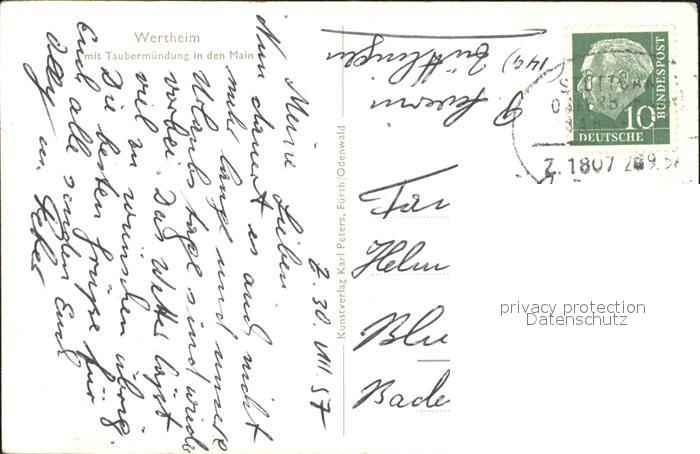 Wertheim
mit Taubermündung in den Main
Z. 30. VIII. 57
Meine Lieben
Nun dauert es auch nicht
mehr lange und unsere
Urlaubstage sind wieder
vorbei. Das Wetter lässt
viel zu wünschen übrig.
Die besten Grüße für
Euch alle senden Euch
Kunstverlag Karl Peters, Fürth/Odenwald
14a)
DEUTSCHE
BUNDESPOST
10
Z. 1807
Helm
Blu
Bade
privacy protection
Datenschutz